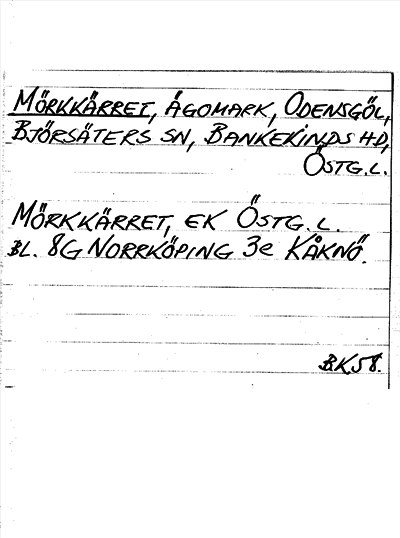 MÖRKKÄRRET, ÄGOMARK, ODENSGÖL,
BJÖRSÄTERS SN, BANKEKINDS HD,
ÖSTG. L.
MÖRKKÄRRET, EK ÖSTG. L.
BL. 8G NORRKÖPING 3e KÅKNÖ.
BK58.